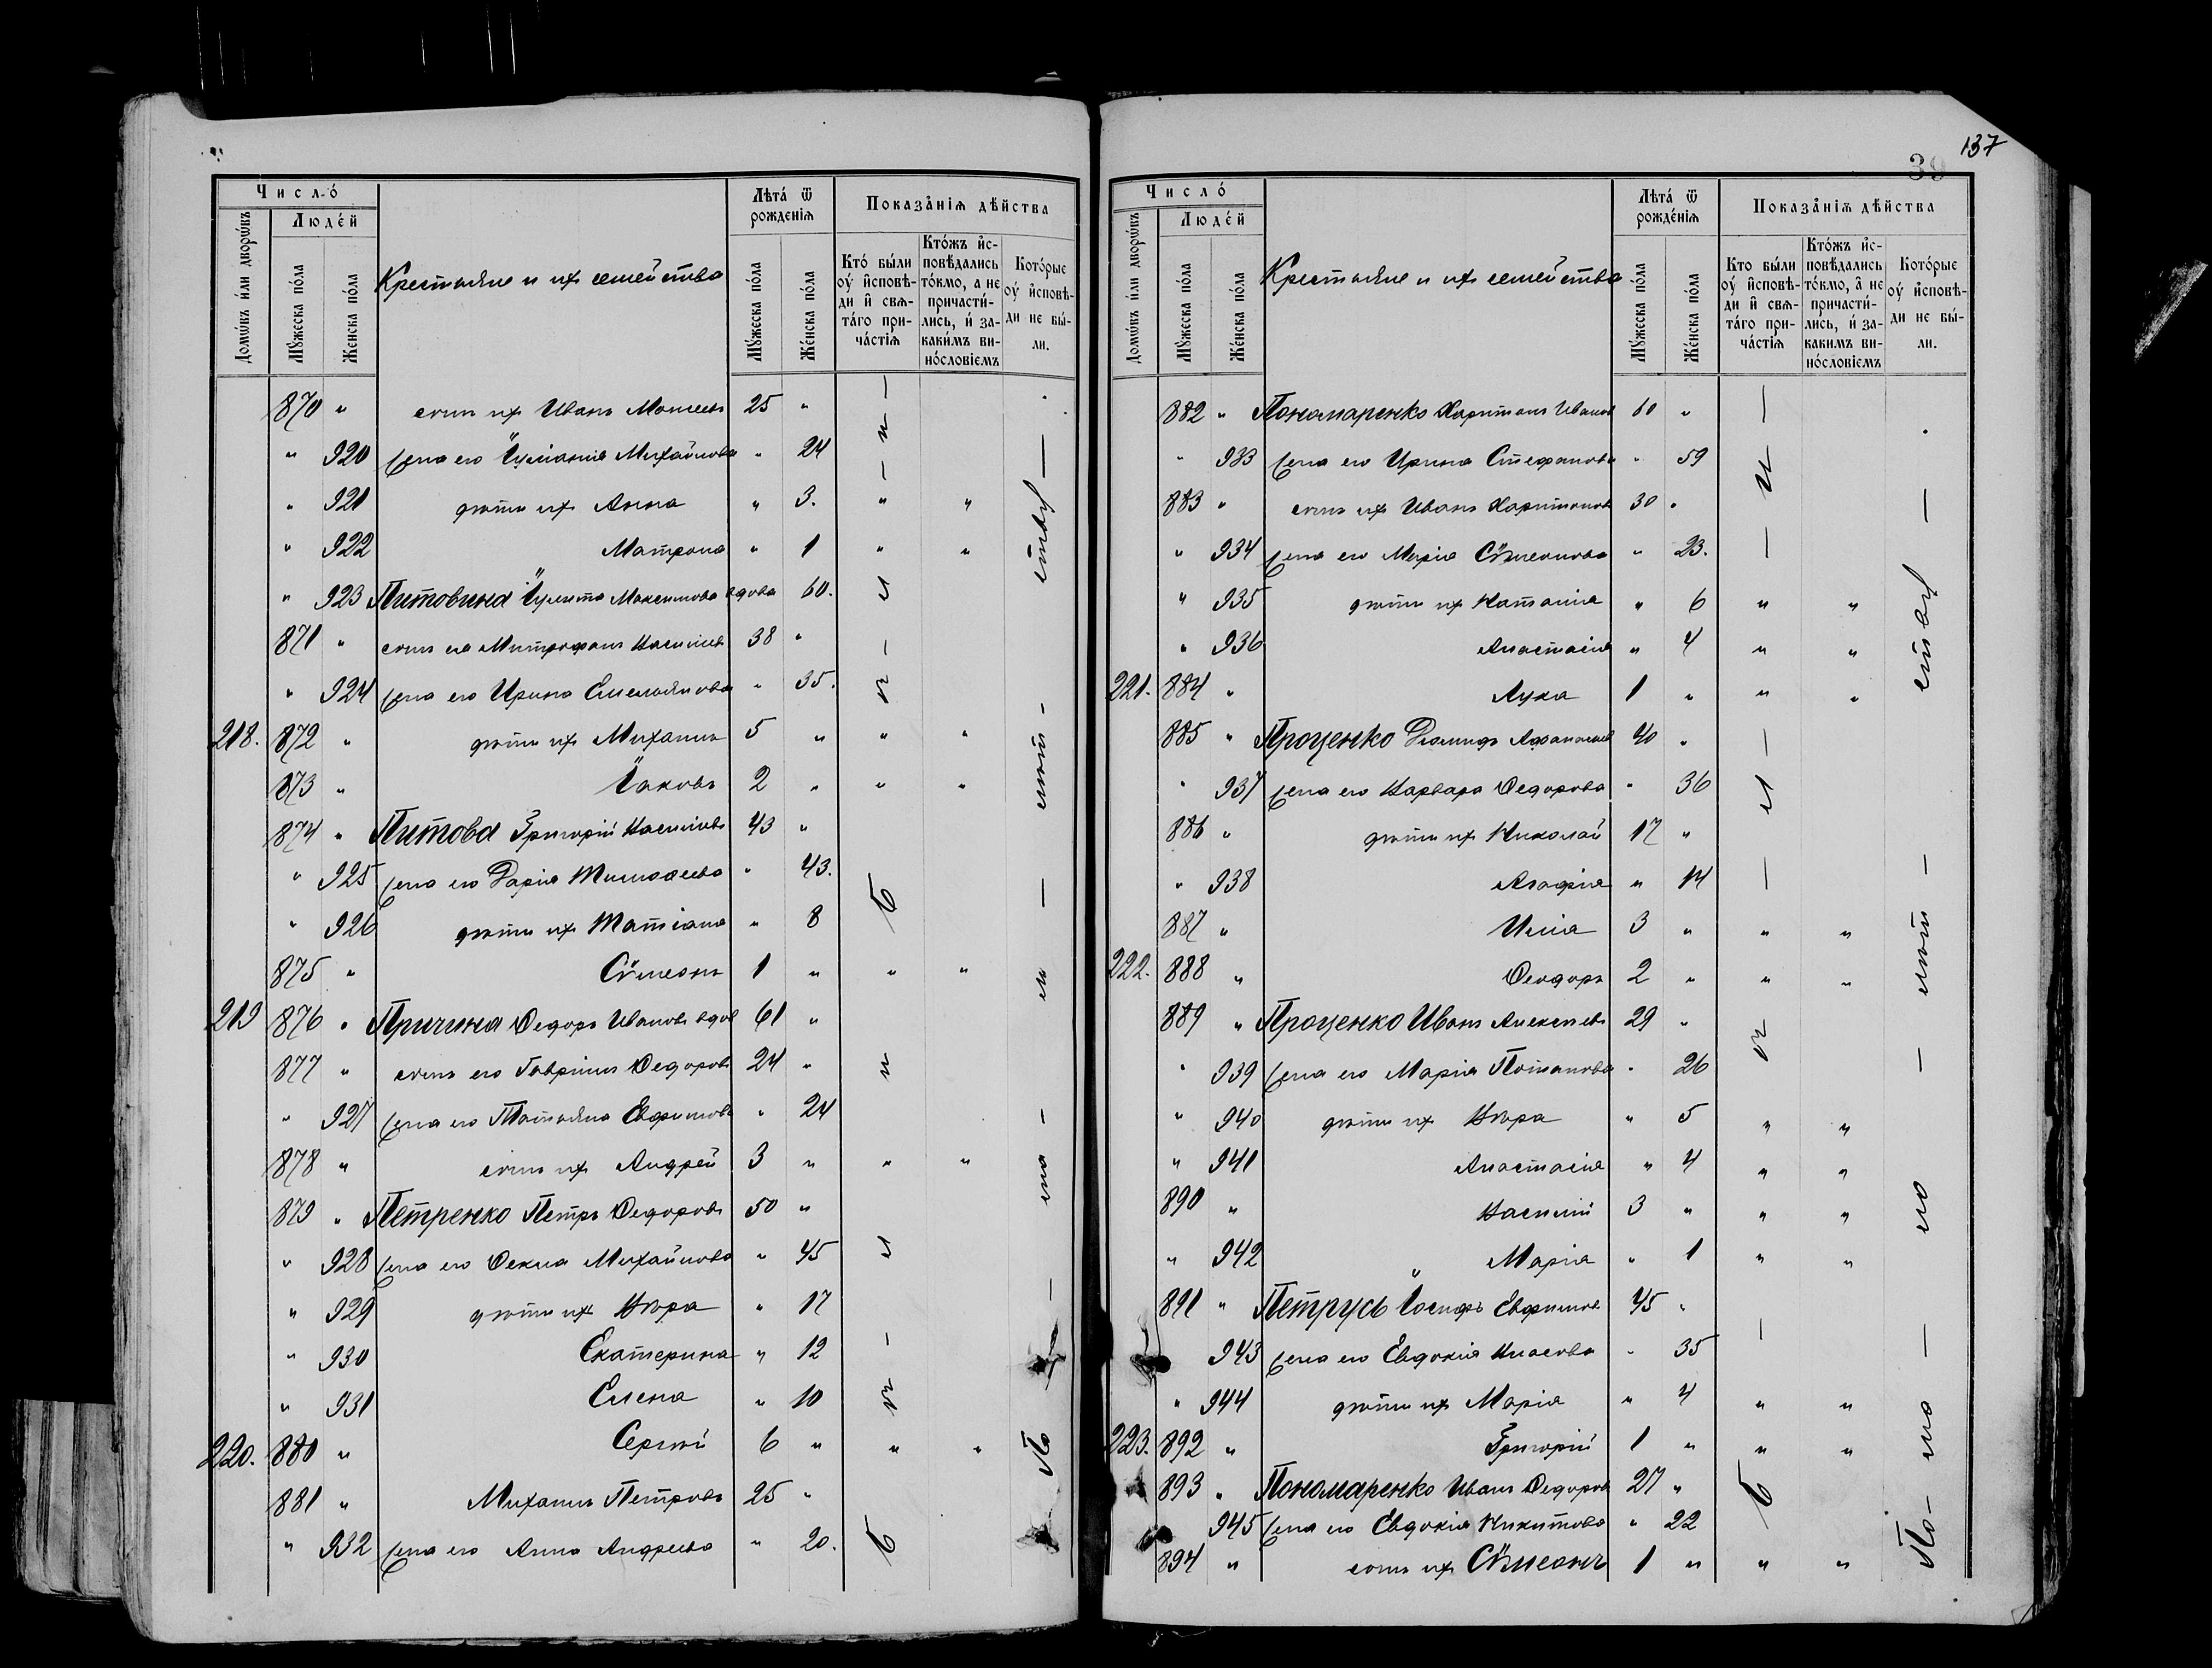 Число́
Домѡ́въ и́ли дворѡ́въ
Люде́й
Мꙋ́жеска по́ла
Же́нска по́ла
Крестьяне и их семейства
Лѣта́ ѿ рожде́нїѧ
Мꙋ́жеска по́ла
Же́нска по́ла
Показа̑нїѧ дѣ́йства
Кто́ бы́ли оу҆ и҆сповѣ́ди и҆ свѧта́го прича́стїѧ
Кто́жъ и҆сповѣ́дались то́кмо, а не причасти́лись, и҆ за каки́мъ вино́словїемъ
Кото́рые оу҆ и҆сповѣ́ди не бы́ли.
870 " сынъ их Иванъ Моисеевъ 25 "
" 920 жена его Іуліанія Михайлова " 24
" 921 дѣти их Анна " 3. " "
" 922 Матрона " 1 " "
" 923 Питовина Іулита Максимова вдова 60.
871 " сынъ ея Митрофанъ Васильевъ 38 "
" 924 жена его Ирина Емельянова " 35.
218. 872 " дѣти их Михаилъ 5 " " "
873 " Іаковъ 2 " " "
874 " Питова Григорій Васильевъ 43 "
" 925 жена его Дарія Тимофеева " 43.
" 926 дѣти их Татіана " 8
875 " Сѵмеонъ 1 " " "
219 876 " Пригина Ѳедоръ Ивановъ вдов 61 "
877 " сынъ его Гавріилъ Ѳедоровъ 24 "
" 927 жена его Татьяна Евфимова " 24
878 " сынъ их Андрей 3 " " "
879 " Петренко Петръ Ѳедоровъ 50 "
" 928 жена его Ѳекла Михайлова " 45
" 929 дѣти их Вѣра " 17
" 930 Екатерина " 12
" 931 Елена " 10
220. 880 " Сергѣй 6 " " "
881 " Михаилъ Петровъ 25 "
" 932 жена его Анна Андреева " 20.
137
39
Число́
Домѡ́въ и́ли дворѡ́въ
Люде́й
Мꙋ́жеска по́ла
Же́нска по́ла
Крестьяне и их семейства
Лѣта́ ѿ рожде́нїѧ
Мꙋ́жеска по́ла
Же́нска по́ла
Показа̑нїѧ дѣ́йства
Кто бы́ли оу҆ и҆сповѣ́ди и҆ свѧта́го прича́стїѧ
Кто́жъ и҆сповѣ́дались то́кмо, а҆ не причасти́лись, и҆ за каки́мъ вино́словїемъ
Кото́рые оу҆ и҆сповѣ́ди не бы́ли.
882 " Пономаренко Харитонъ Ивановъ 60 "
" 933 жена его Ирина Стефанова " 59
883 " сынъ их Иванъ Харитоновъ 30 "
" 934 жена его Марія Сѵмеонова " 23.
" 935 дѣти их Наталія " 6 " "
" 936 Анастасія " 4 " "
221. 884 " Лука 1 " " "
885 " Проценко Діомидъ Афанасьевъ 40 "
" 937 жена его Варвара Ѳедорова " 36
886 " дѣти их Николай 17 "
" 938 Агафія " 14
887 " Илія 3 " " "
222. 888 " Ѳеодоръ 2 " " "
889 " Проценко Иванъ Алексѣевъ 29 "
" 939 жена его Марія Потапова " 26
" 940 дѣти их Вѣра " 5 " "
" 941 Анастасія " 4 " "
890 " Василій 3 " " "
" 942 Марія " 1 " "
891 " Петрусь Іосифъ Евфимовъ 45 "
943 жена его Евдокія Власова " 35
" 944 дѣти их Марія " 4 " "
223. 892 " Григорій 1 " " "
893 " Пономаренко Иванъ Ѳедоровъ 27 "
945 жена его Евдокія Никитова " 22
894 " сынъ их Сѵмеонъ 1 " " "